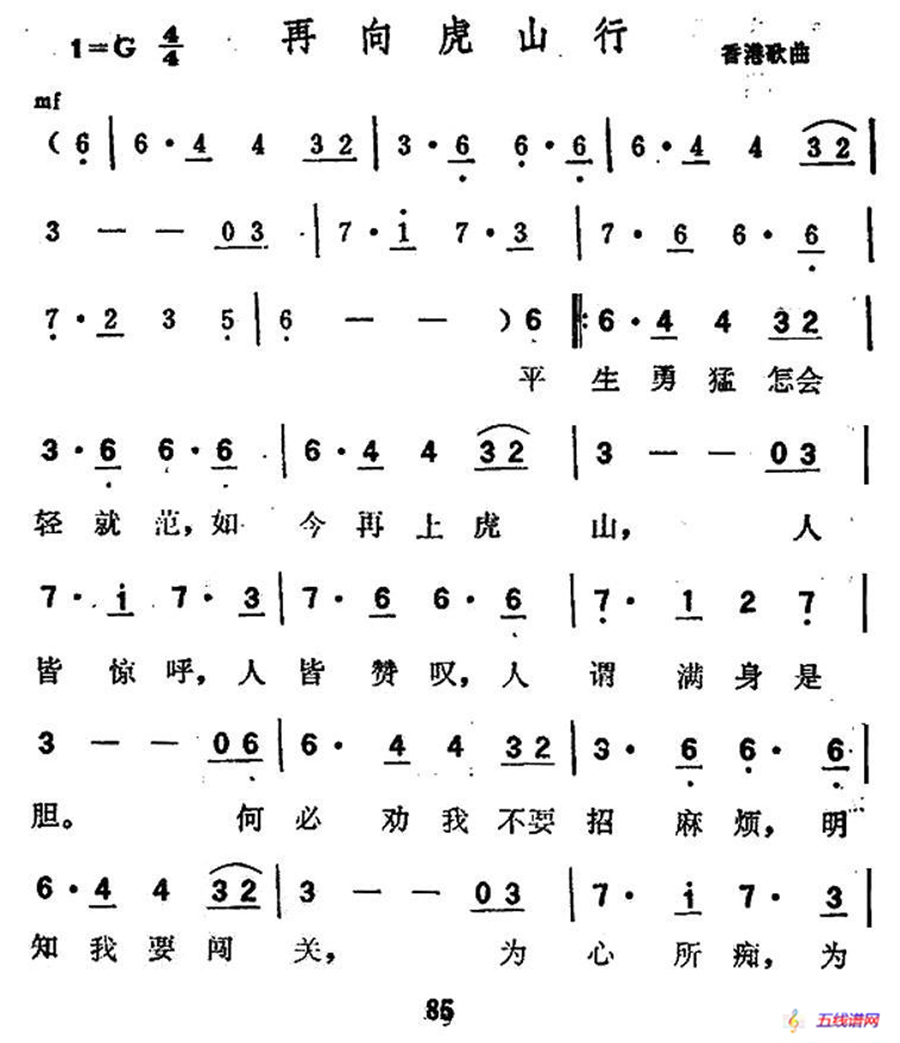 再向虎山行
1=G 4/4 香港歌曲
mf
( 6 | 6 · 4 4 3 2 | 3 · 6 6 · 6 | 6 · 4 4 3 2 |
3 — — 0 3 | 7 · i 7 · 3 | 7 · 6 6 · 6 |
7 · 2 3 5 | 6 — — ) 6 ‖: 6 · 4 4 3 2 |
平 生 勇 猛 怎会
3 · 6 6 · 6 | 6 · 4 4 3 2 | 3 — — 0 3 |
轻 就 范，如 今 再 上 虎 山， 人
7 · i 7 · 3 | 7 · 6 6 · 6 | 7 · 1 2 7 |
皆 惊 呼，人 皆 赞 叹，人 谓 满 身 是
3 — — 0 6 | 6 · 4 4 3 2 | 3 · 6 6 · 6 |
胆。 何 必 劝 我 不要 招 麻 烦，明
6 · 4 4 3 2 | 3 — — 0 3 | 7 · i 7 · 3 |
知 我 要 闯 关， 为 心 所 痴，为
85
五线谱网